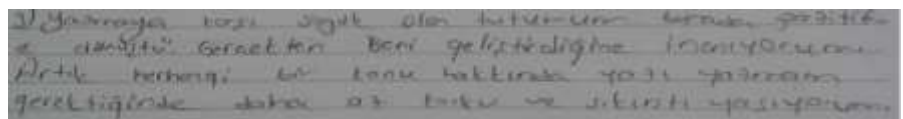 3) Yazmaya karşı soğuk olan tutumum burada pozitif-
e dönüştü. Gerçekten beni geliştirdiğine inanıyorum.
Artık herhangi bir konu hakkında yazı yazmam
gerektiğinde daha az korku ve sıkıntı yaşıyorum.